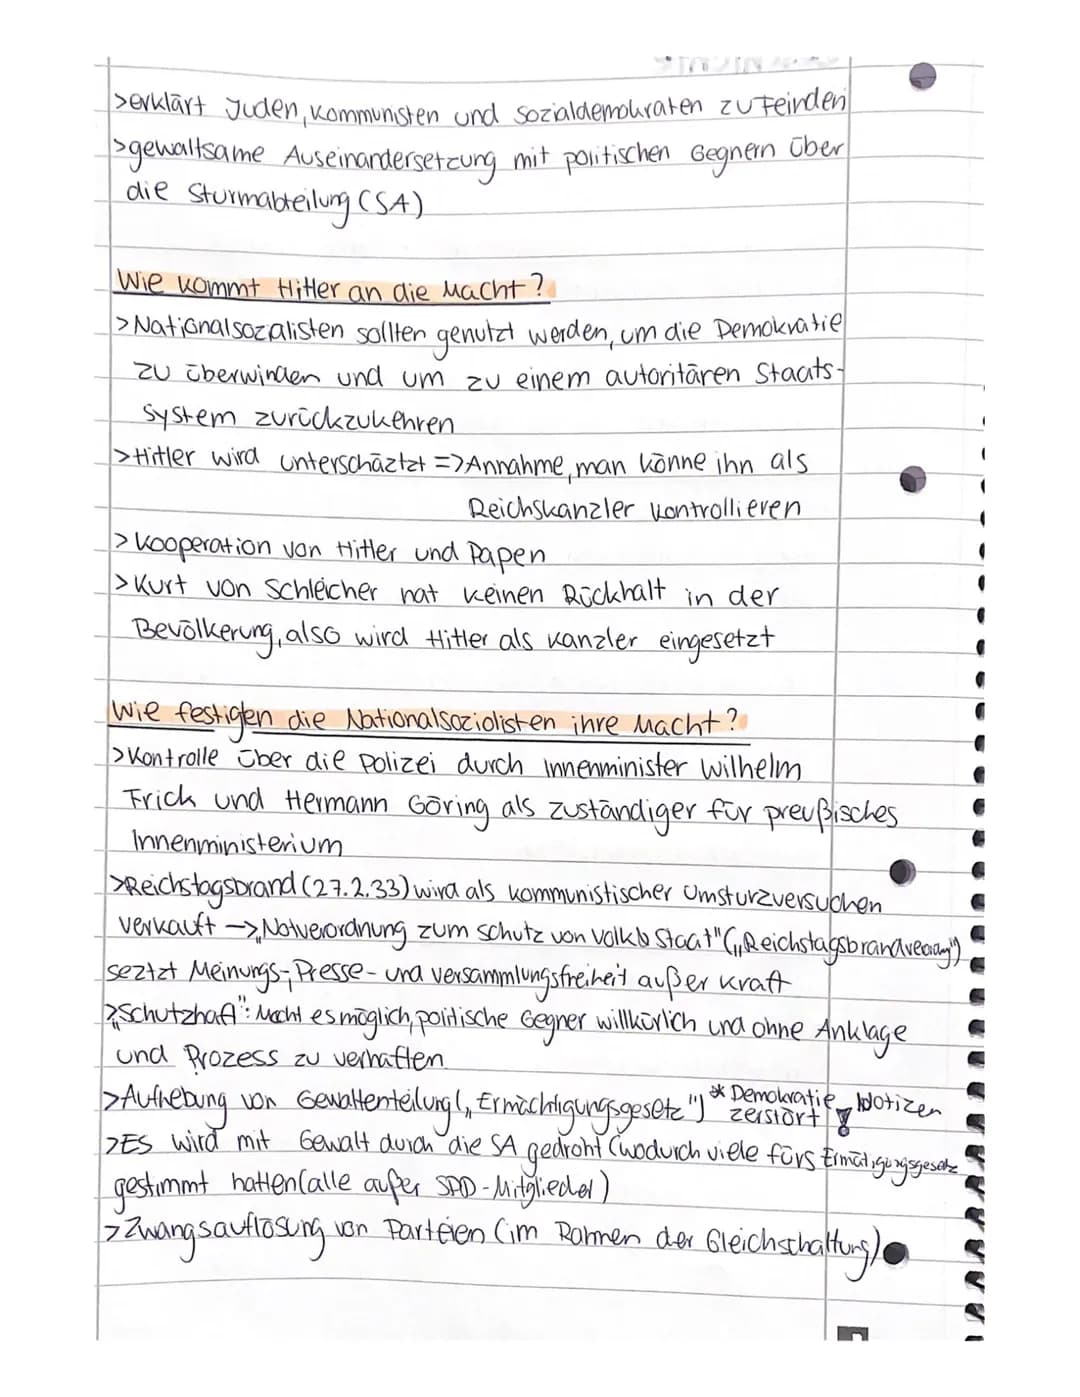 >erklärt Juden, Kommunisten und Sozialdemokraten zu Feinden
>gewaltsame Auseinandersetzung mit politischen Gegnern über
die Sturmabteilung (SA)
Wie kommt Hitler an die Macht?
>Nationalsozalisten sollten genutzt werden, um die Demokratie
zu überwinden und um zu einem autoritären Staats-
system zurückzukehren
>Hitler wird unterschäztzt =>Annahme, man könne ihn als
Reichskanzler kontrollieren
>Kooperation von Hitler und Papen
>Kurt von Schleicher hat keinen Rückhalt in der
Bevölkerung, also wird Hitler als Kanzler eingesetzt
Wie festigten die Nationalsoziolisten ihre Macht?
>Kontrolle über die Polizei durch Innenminister Wilhelm
Frick und Hermann Göring als zuständiger für preußisches
Innenministerium
>Reichstagsbrand (27.2.33) wird als kommunistischer Umsturzversuchen
verkauft ->„Notverordnung zum Schutz von Volk & Staat" („Reichstagsbrandverordnung")
seztzt Meinungs-, Presse- und Versammlungsfreiheit außer Kraft
>„Schutzhaft": Macht es möglich, politische Gegner willkürlich und ohne Anklage
und Prozess zu verhaften
>Aufhebung von Gewaltenteilung („Ermächtigungsgesetz") * Demokratie Notizen
zerstört !
>ES wird mit Gewalt durch die SA gedroht (wodurch viele fürs Ermätigungsgesetz
gestimmt hatten (alle außer SPD-Mitglieder)
>Zwangsauflösung von Parteien (im Rahmen der Gleichschaltung)